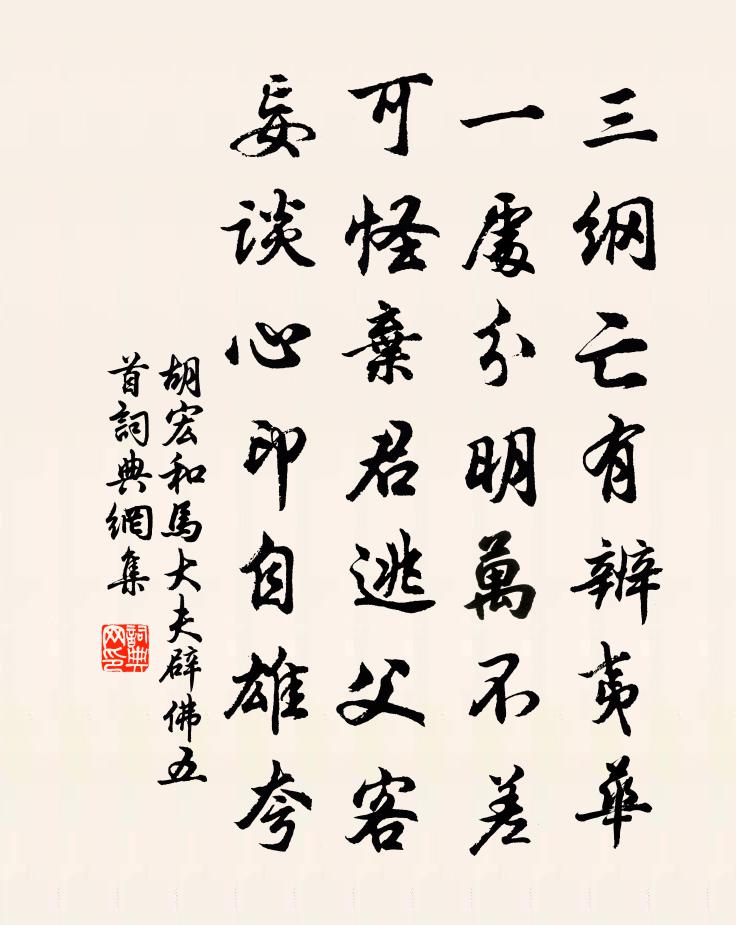 三纲亡有辨夷華
一處分明萬不差
可怪棄君逃父客
妄谈心印自雄夸
胡宏和馬大夫辟佛五
首詞典網集
詞典
网印